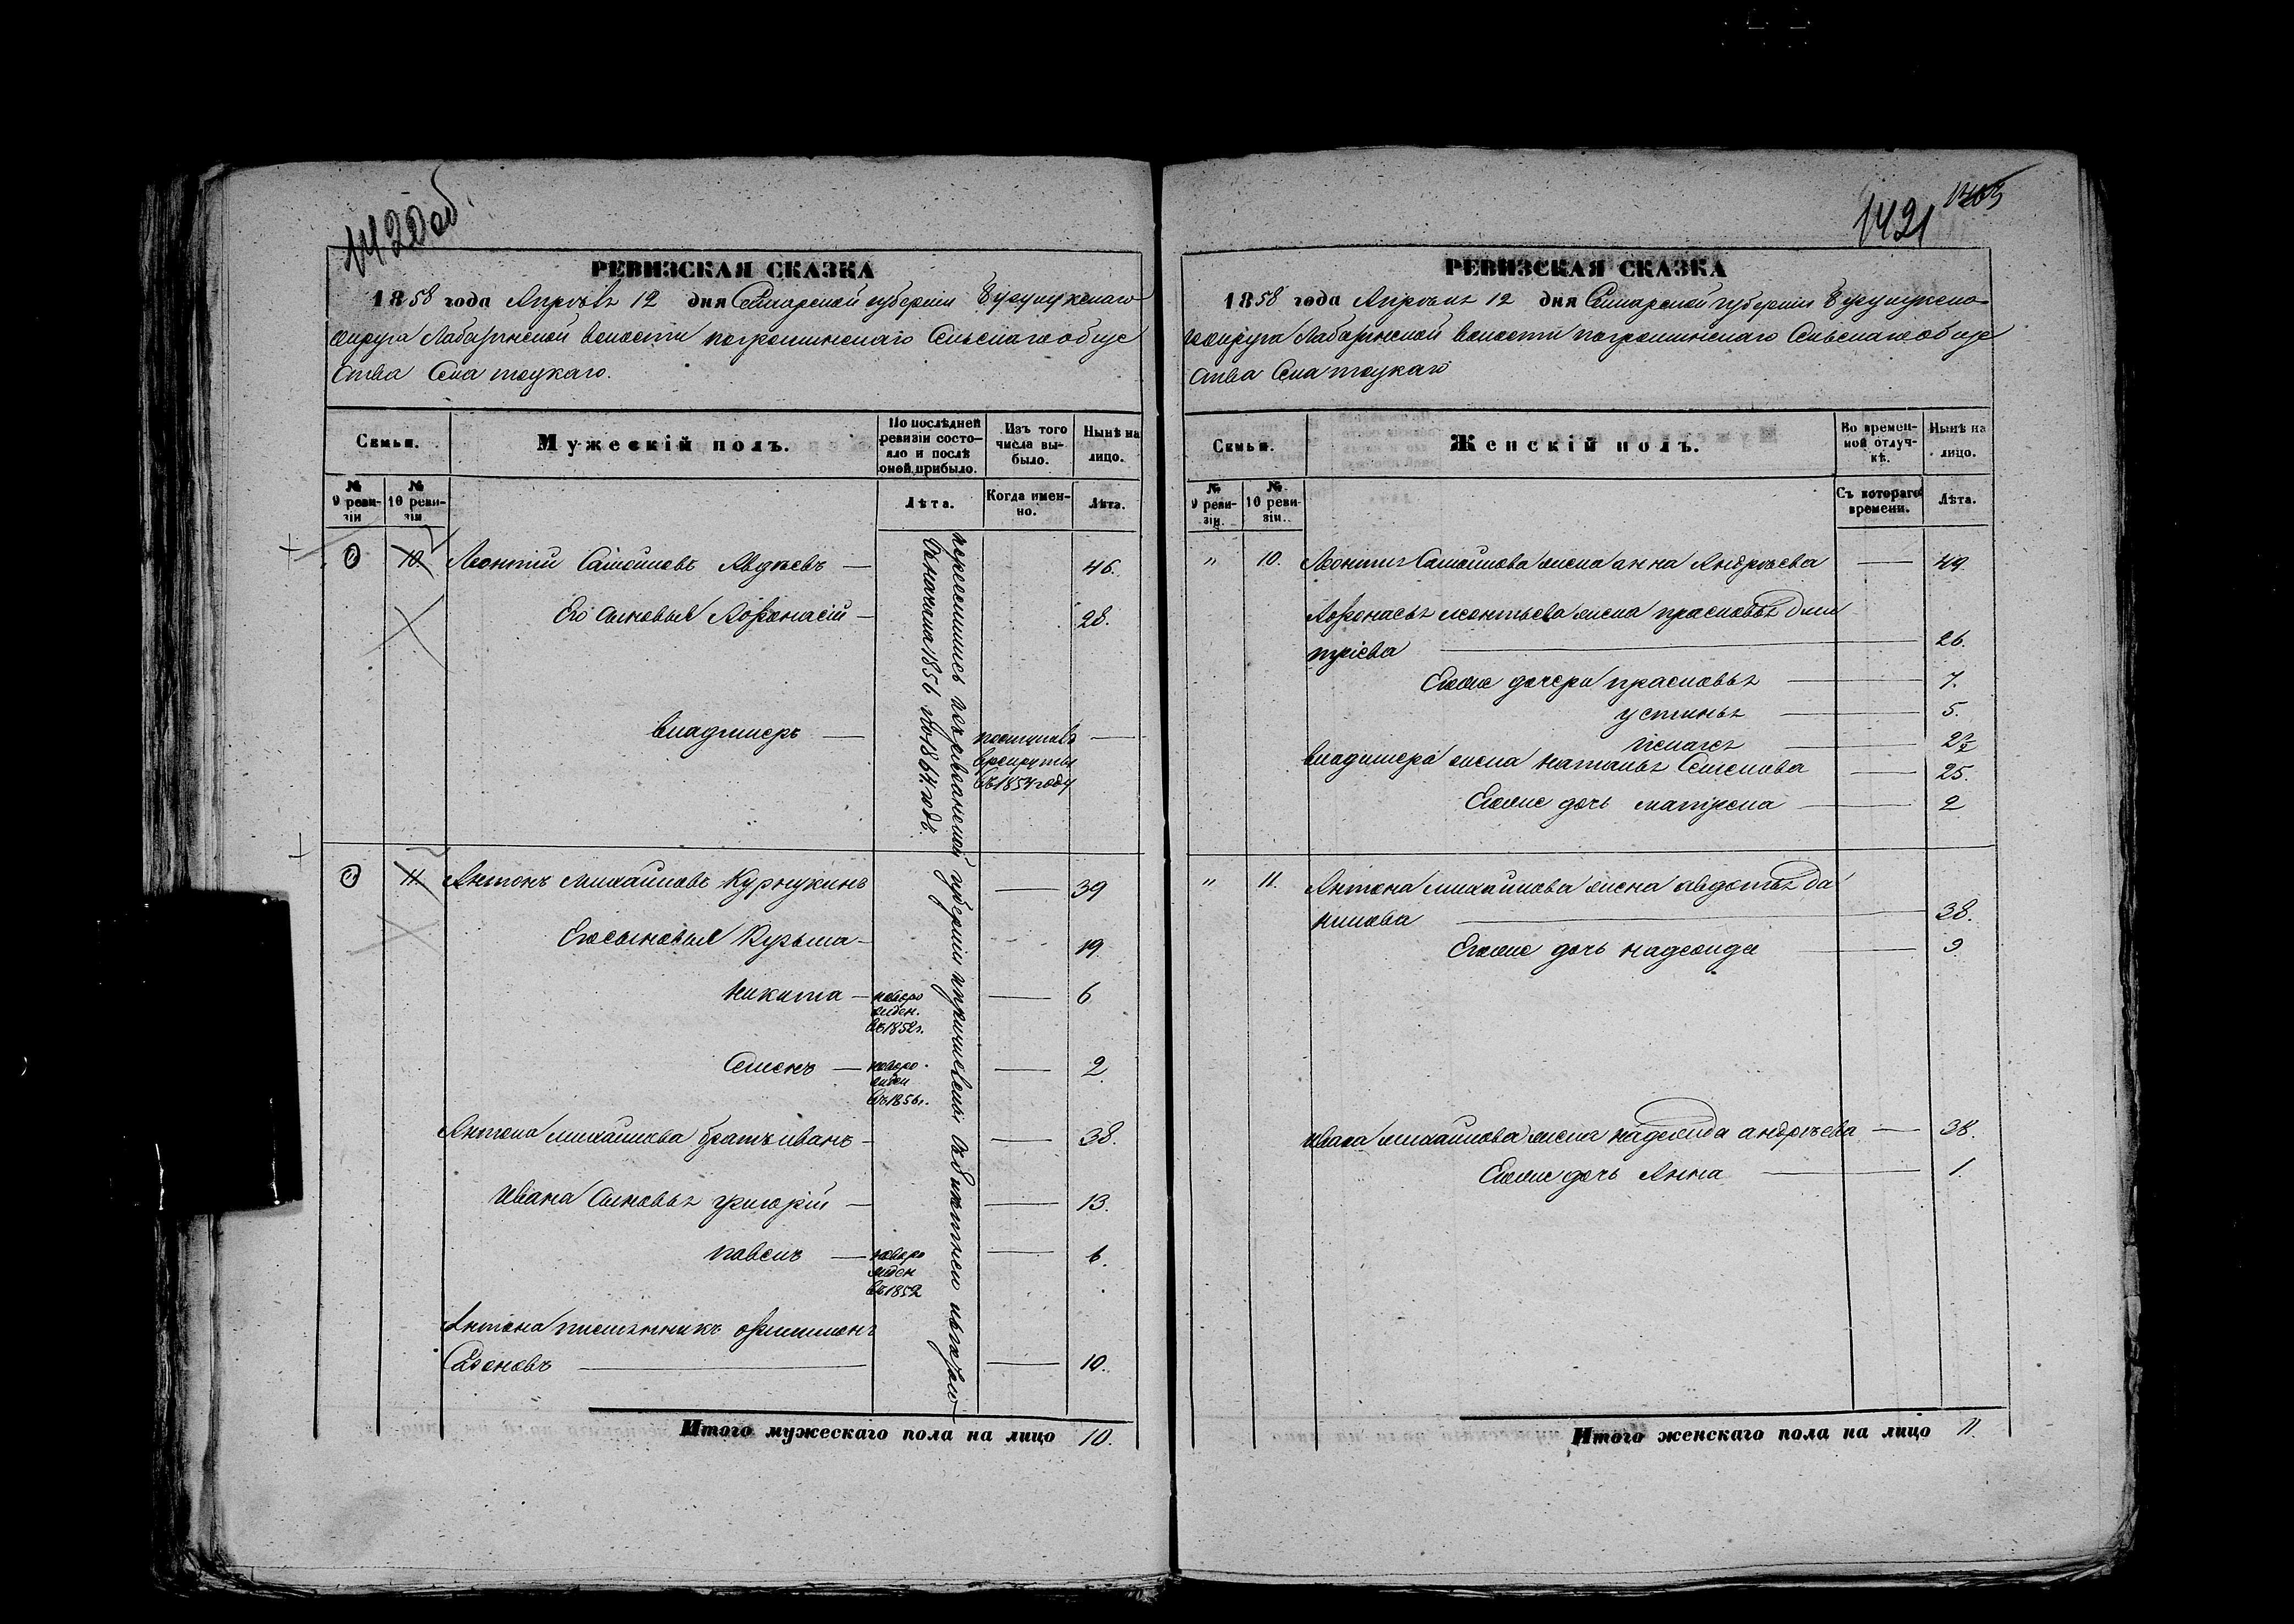 1420 об.
РЕВИЗСКАЯ СКАЗКА
1858 года Апрѣля 12 дня Самарской губерніи Бузулукскаго
округа Лабазинской волости погроминскаго Сельскаго обще
ства Села тоцкаго.
Семьи.
Мужескій полъ.
По послѣдней
ревизіи состо-
яло и послѣ
оной прибыло.
Изъ того
числа вы-
было.
Нынѣ на
лицо.
№
9 реви-
зіи
№
10 реви-
зіи
Лѣта.
Когда имен-
но.
Лѣта.
10. Леонтій Самойловъ Авдѣевъ — 46.
Его сыновья Афонасій — 28.
владимеръ — поступилъ —
врекруты
въ 1854 году
переселились
губерніи
11. Антонъ михайловъ Курнукинъ — 39
Его сыновья Кузьма — 19.
никита — новоро — 6
жден.
въ 1852 г.
Семенъ — новоро — 2.
жден
въ 1856 г.
Антона михайлова братъ иванъ — 38.
ивана сыновья григорій — 13.
павелъ — новоро — 6.
жден
въ 1852
Антона племянникъ
— 10.
Итого мужескаго пола на лицо 10.
1421
РЕВИЗСКАЯ СКАЗКА
1858 года Апрѣля 12 дня Самарской губерніи Бузулукска
го округа Лабазинской волости погроминскаго Сельскаго обще
ства Села тоцкаго
Семьи.
Женскій полъ.
Во времен-
ной отлуч-
кѣ.
Нынѣ на
лицо.
№
9 реви-
зіи.
№
10 реви-
зіи.
Съ котораго
времени.
Лѣта.
" 10. Леонтія Самойлова жена анна Андрѣева — 49.
Афонасья леонтьева жена прасковья дми
тріева — 26.
Его же дочери прасковья — 7.
устинья — 5.
пелагея —
владимера жена наталья Семенова — 25.
Его же дочь матрена — 2
" 11. Антона михайлова жена авдотья да
нилова — 38.
Его же дочь надежда — 9.
ивана михайлова жена надежда андрѣева — 38.
Его же дочь Анна — 1.
Итого женскаго пола на лицо 11.